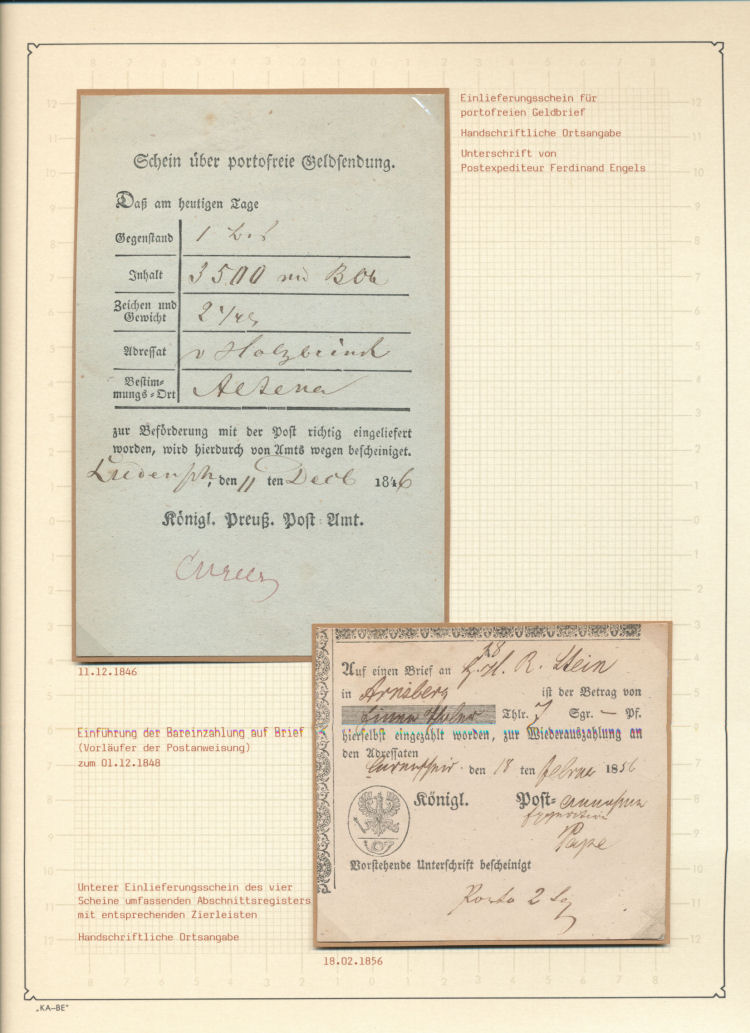 Einlieferungsschein für
portofreien Geldbrief
Handschriftliche Ortsangabe
Unterschrift von
Postexpediteur Ferdinand Engels
Schein über portofreie Geldsendung.
Daß am heutigen Tage
Gegenstand 1
Inhalt 3500
Zeichen und
Gewicht 2
Adressat v Holzbrinck
Bestim-
mungs-Ort Altena
zur Beförderung mit der Post richtig eingeliefert
worden, wird hierdurch von Amts wegen bescheiniget.
Ludensch, den 11 ten Decb 1846
Königl. Preuß. Post-Amt.
11.12.1846
Auf einen Brief an H. R. Stein
in Arnsberg ist der Betrag von
Einen Thaler Thlr. 7 Sgr. — Pf.
hierselbst eingezahlt worden, zur Wiederauszahlung an
den Adressaten
den 18 ten Februar 1856
Königl. Post-
Expedition
Pape
Vorstehende Unterschrift bescheinigt
Porto 2 Sg
18.02.1856
Einführung der Bareinzahlung auf Brief
(Vorläufer der Postanweisung)
zum 01.12.1848
Unterer Einlieferungsschein des vier
Scheine umfassenden Abschnittsregisters
mit entsprechenden Zierleisten
Handschriftliche Ortsangabe
„KA–BE"